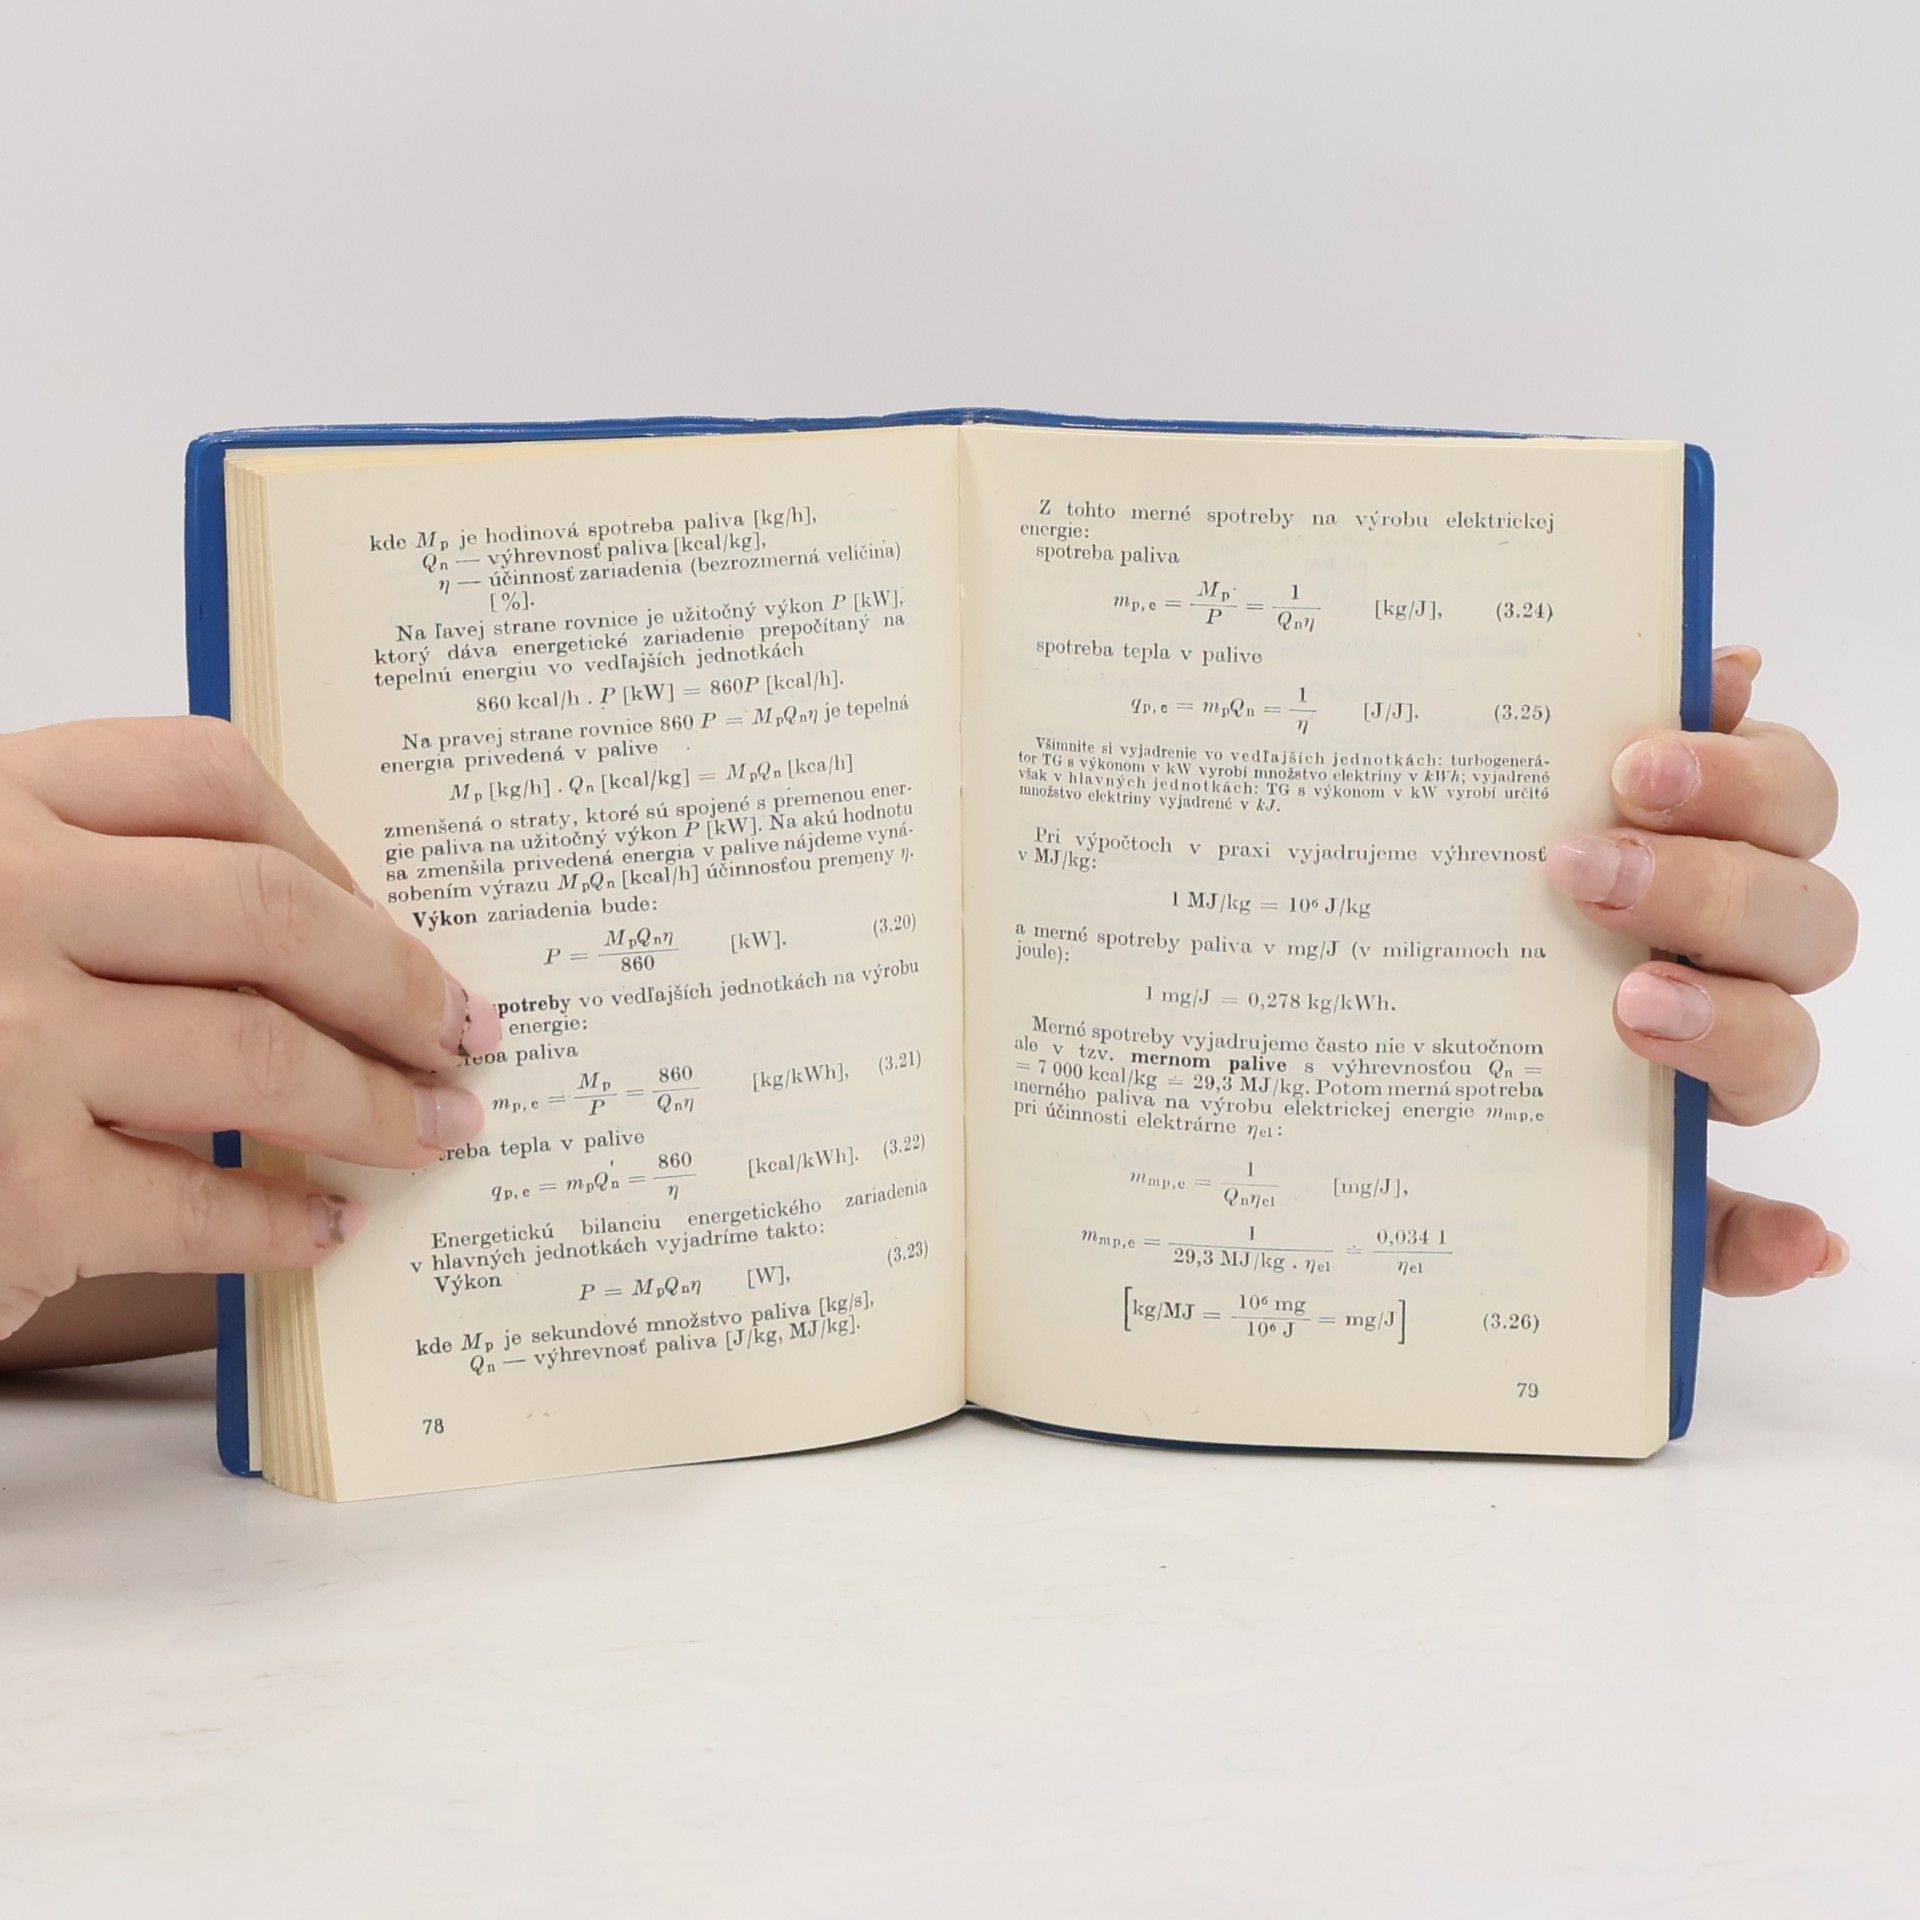 kde Mp je hodinová spotreba paliva [kg/h],
Qn — výhrevnosť paliva [kcal/kg],
η — účinnosť zariadenia (bezrozmerná veličina)
[%].
Na ľavej strane rovnice je užitočný výkon P [kW],
ktorý dáva energetické zariadenie prepočítaný na
tepelnú energiu vo vedľajších jednotkách
860 kcal/h . P [kW] = 860P [kcal/h].
Na pravej strane rovnice 860 P = MpQnη je tepelná
energia privedená v palive
Mp [kg/h] . Qn [kcal/kg] = MpQn [kca/h]
zmenšená o straty, ktoré sú spojené s premenou ener-
gie paliva na užitočný výkon P [kW]. Na akú hodnotu
sa zmenšila privedená energia v palive nájdeme vyná-
sobením výrazu MpQn [kcal/h] účinnosťou premeny η.
Výkon zariadenia bude:
P = MpQnη / 860 [kW]. (3.20)
potreby vo vedľajších jednotkách na výrobu
energie:
reba paliva
mp,e = Mp / P = 860 / Qnη [kg/kWh], (3.21)
treba tepla v palive
qp,e = mpQn = 860 / η [kcal/kWh]. (3.22)
Energetickú bilanciu energetického zariadenia
v hlavných jednotkách vyjadríme takto:
Výkon
P = MpQnη [W], (3.23)
kde Mp je sekundové množstvo paliva [kg/s],
Qn — výhrevnosť paliva [J/kg, MJ/kg].
78
Z tohto merné spotreby na výrobu elektrickej
energie:
spotreba paliva
mp,e = Mp / P = 1 / Qnη [kg/J], (3.24)
spotreba tepla v palive
qp,e = mpQn = 1 / η [J/J]. (3.25)
Všimnite si vyjadrenie vo vedľajších jednotkách: turbogenerá-
tor TG s výkonom v kW vyrobí množstvo elektriny v kWh; vyjadrené
však v hlavných jednotkách: TG s výkonom v kW vyrobí určité
množstvo elektriny vyjadrené v kJ.
Pri výpočtoch v praxi vyjadrujeme výhrevnosť
v MJ/kg:
1 MJ/kg = 10⁶ J/kg
a merné spotreby paliva v mg/J (v miligramoch na
joule):
1 mg/J = 0,278 kg/kWh.
Merné spotreby vyjadrujeme často nie v skutočnom
ale v tzv. mernom palive s výhrevnosťou Qn =
= 7 000 kcal/kg ≐ 29,3 MJ/kg. Potom merná spotreba
merného paliva na výrobu elektrickej energie mmp,e
pri účinnosti elektrárne ηel:
mmp,e = 1 / Qnηel [mg/J],
mmp,e = 1 / 29,3 MJ/kg . ηel ≐ 0,034 1 / ηel
[kg/MJ = 10⁶ mg / 10⁶ J = mg/J] (3.26)
79